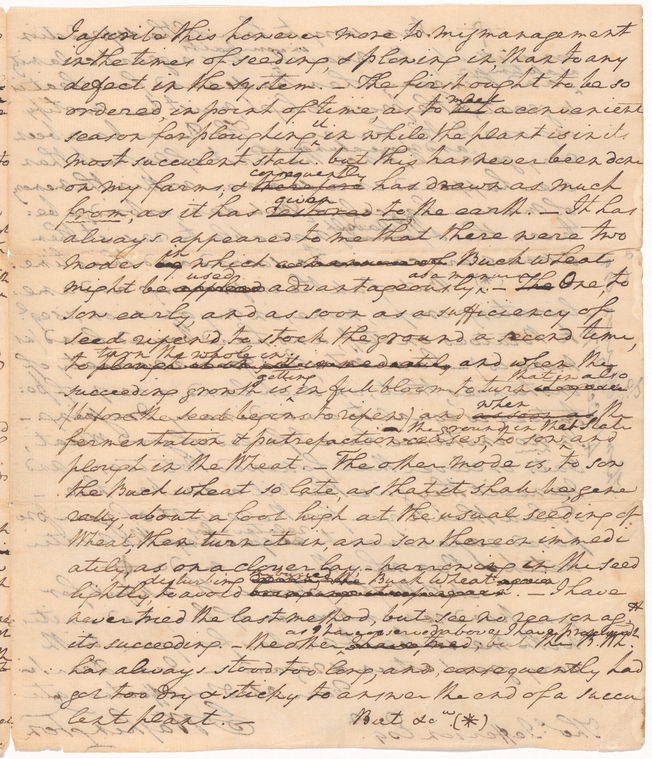 I ascribe this however more to mismanagement
in the times of seeding & plowing in, than to any
defect in the system. – The first ought to be so
ordered, in point of time, as to meet a convenient
season for ploughing it in while the plant is in its
most succulent state; but this has never been done
on my farms, & consequently therefore has drawn as much
from, as it has given restored to the earth. – It has
always appeared to me that there were two
modes in which Buck wheat
might be used advantageously as a manure. – The One, to
sow early and as soon as a sufficiency of
seed ripen'd, to stock the ground a second time,
to turn the whole in, and when the
succeeding growth is getting in full bloom to turn that in also
(before the seed begins to ripen) and when as soon as the
fermentation & putrefaction ceases, to sow the ground in that state and
plough in the Wheat. – The other mode is, to sow
the Buck wheat so late as that it shall be gene
rally, about a foot high at the usual seeding of
Wheat; then turn it in, and sow thereon immedi
ately, as on a clover lay – harrowing in the seed
lightly, to avoid disturbing the buried Buck Wheat. – I have
never tried the last method, but see no reason ag't
its succeeding. – The other, as I have observed above, I have practised but the B. Wh.
has always stood too long, and, consequently had
got too dry & sticky to answer the end of a succu
lent plant. –
But &ca (*)
Thos. Jefferson Esq